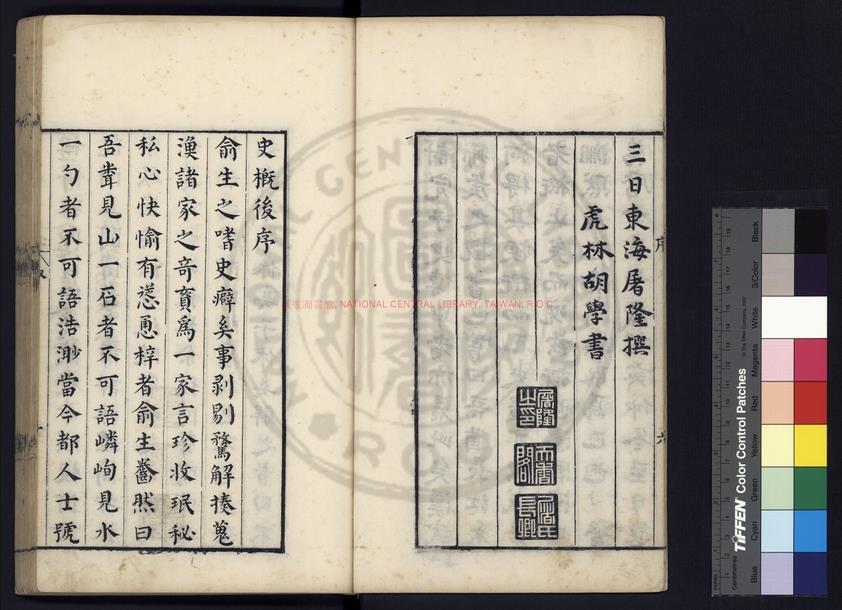 三日東海屠隆撰
虎林胡學書
屠隆之印
屠氏長卿
序
六
史概後序
俞生之嗜史癖矣事剥剔騖解揍蒐
漁諸家之奇賀爲一家言珍收珉秘
私心快愉有慫恿梓者俞生蠹然曰
吾聋見山一石者不可語嶙峋見水
一勺者不可語浩渺當今都人士號
國家圖書館, NATIONAL CENTRAL LIBRARY, TAIWAN, R.O.C
TIFFEN Color Control Patches
Blue
Cyan
Green
Yellow
Red
Magenta
White
3/Color
Black
Centimetres